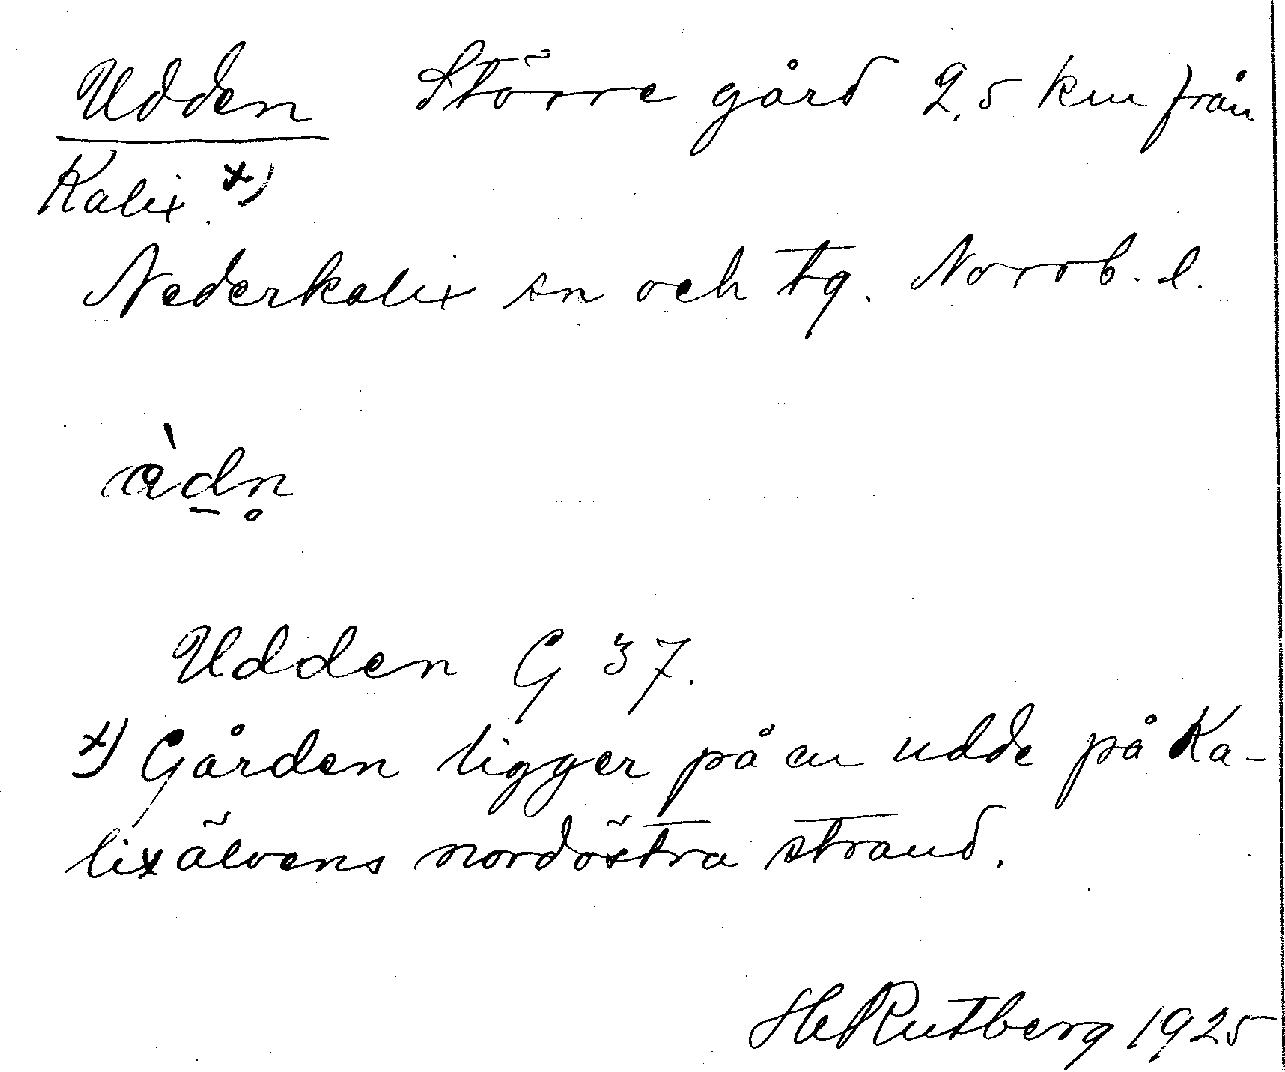 Udden Större gård 2,5 km från
Kalix x)
Nederkalix sn och tg. Norrb. l.
Udden G 37.
x) Gården ligger på en udde på Ka-
lixälvens nordöstra strand.
He Rutberg 1925